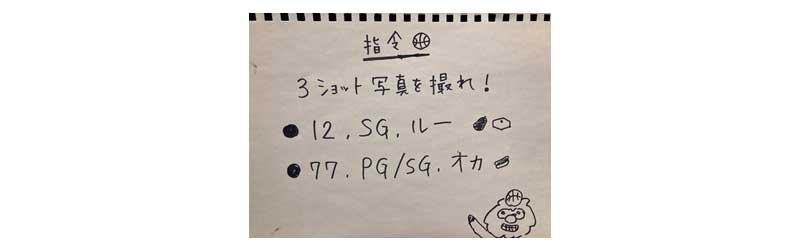 指令
3ショット写真を撮れ!
12. SG. ルー
77. PG/SG. オカ